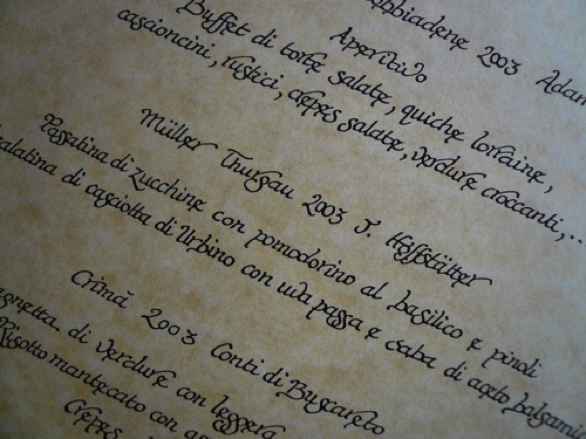 obbiadene 2003 Adam
Aperitivo
Buffet di torte salate, quiche lorraine,
cascioncini, rustici, crepes salate, verdure croccanti,..
Müller Thurgau 2003 J. Hoffstätter
Passatina di zucchine con pomodorino al basilico e pinoli
alatina di casciotta di Urbino con uva passa e saba di aceto balsamic
Crimà 2003 Conti di Buscareto
agnetta di verdure con leggera
Risotto mantecato con
Crepes